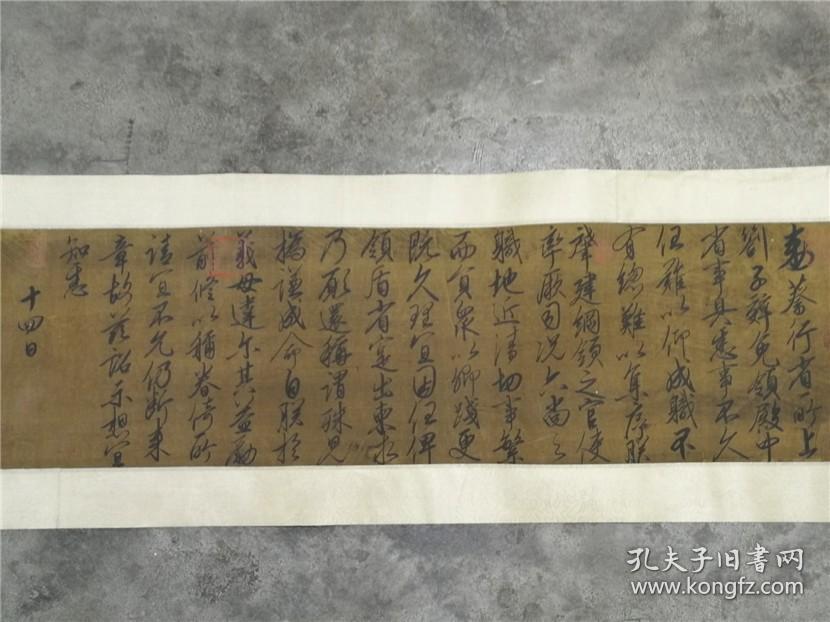 勅蔡行省所上
劄子辭免領殿中
省事具悉事不久
任難以仰成職不
有總難以集序朕
肇建綱領之官使
率厥司況六尚之
職地近清切事繁
而員眾以卿踐更
既久理宜因任俾
領盾省寔出柬求
乃願還稱謂殊見
撝謙成命自朕於
義毋違爾其益勵
前修以稱眷倚所
請宜不允仍斷來
章故茲詔示想宜
知悉
十四日
孔夫子旧书网
www.kongfz.com